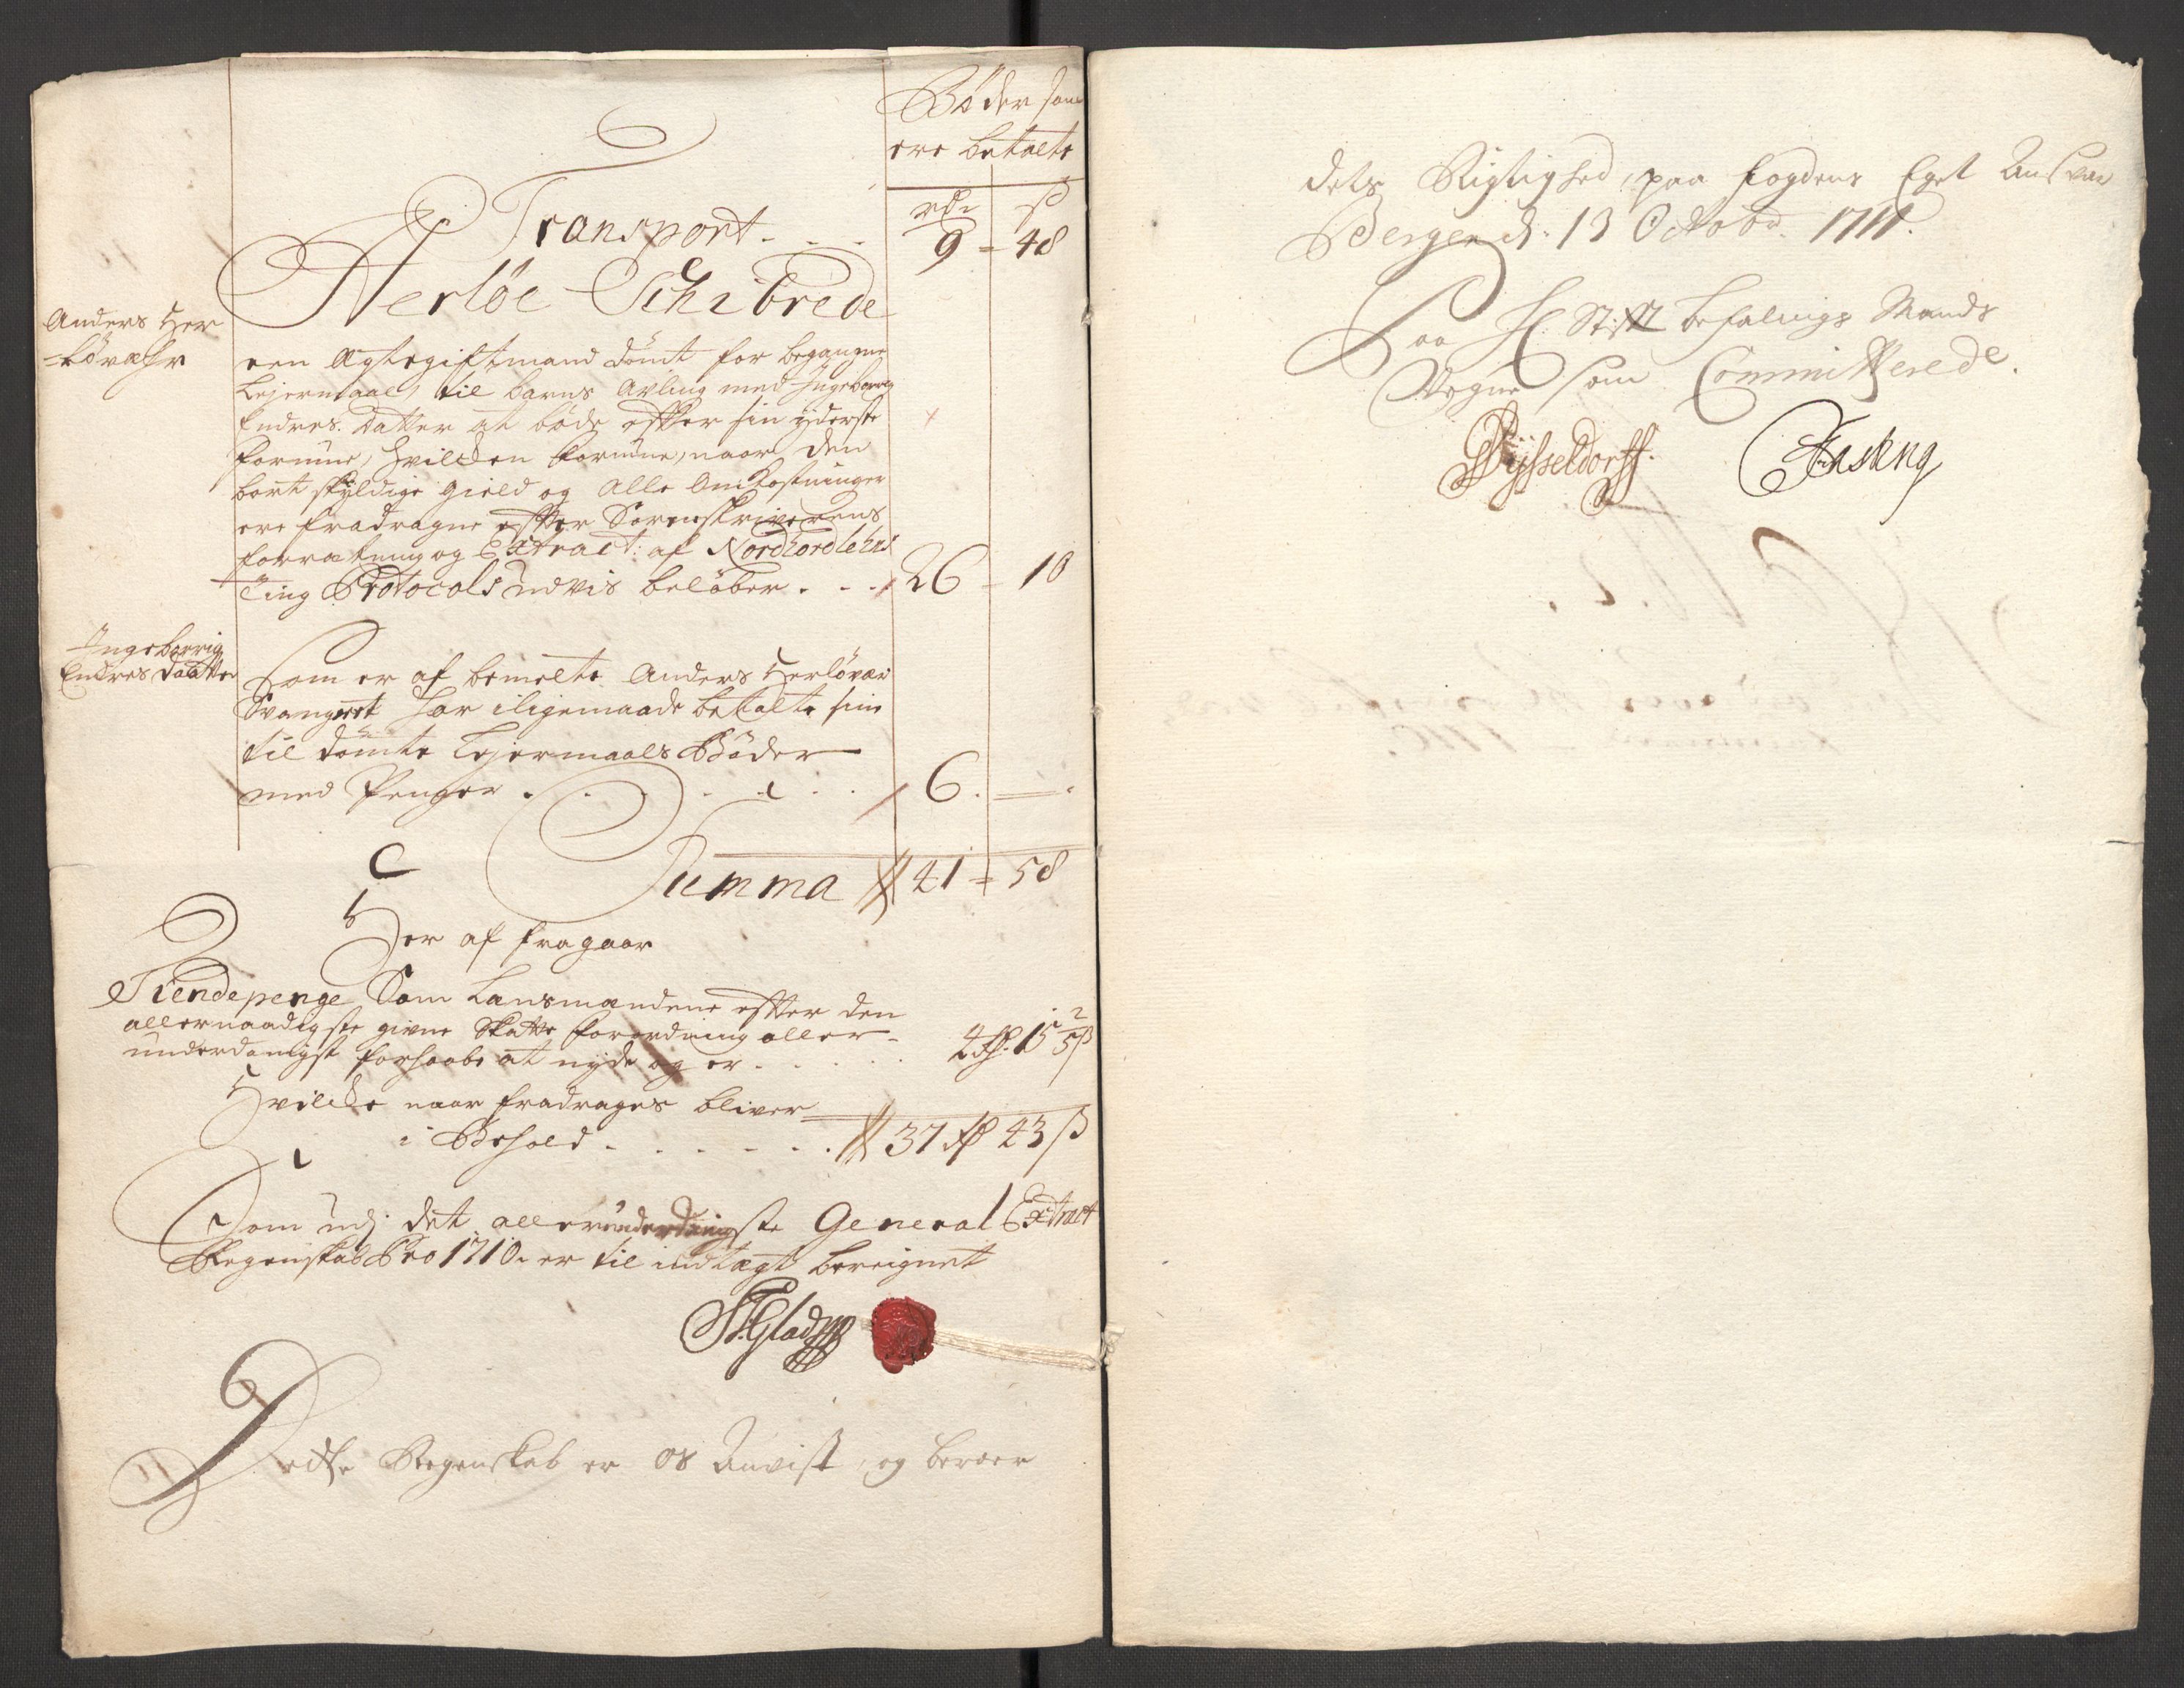 Bøder som
ere betalte
Transport. . .
rdr ß
9 = 48
Herlöe Schibrede
Anders Her
=lövæhr
een Ægtegiftmand dömt for begangne
Lejermaal, til barns Avling med Ingeborrig
Endres Datter at böde effter sin yderste
formue, hvilcken formue, naar den
bort skyldige gield og alle Omkostninger
ere fradragne effter Sorenskriverens
forretning og Extract: af Nordhordlehns
Ting Protocols udvis beløber . . . 26 = 10
Ingeborrig
Endres Daatter
Som er af bemelte Anders Herlövær
Svangeret har iligemaade betalte sine
til dömte Lejermaals Bøder
med Penger . . . . . . 6. =
Summa 41 = 58
Her af fragaar
Tiendepenge Som Lansmændene effter den
allernaadigste givne Skatte forordning aller-
underdanigst forhaabe at nyde og er . . . . . 4 rd. 15 2/5 ß
Hvilcke naar fradrages bliver
i Behold . . . . . . 37 rd 43 ß
Som udj det allerunderdanigste General Extract
Regenskab Pro 1710. er til indtægt bereignet
Dette Regenskab er os Anvist, og beroer
dets Rigtighed, paa fogdens Eget Ansvar
Bergen d: 13 Octobr. 1711.
Paa H: Stifft befalings Mands
Vegne som Committerede.